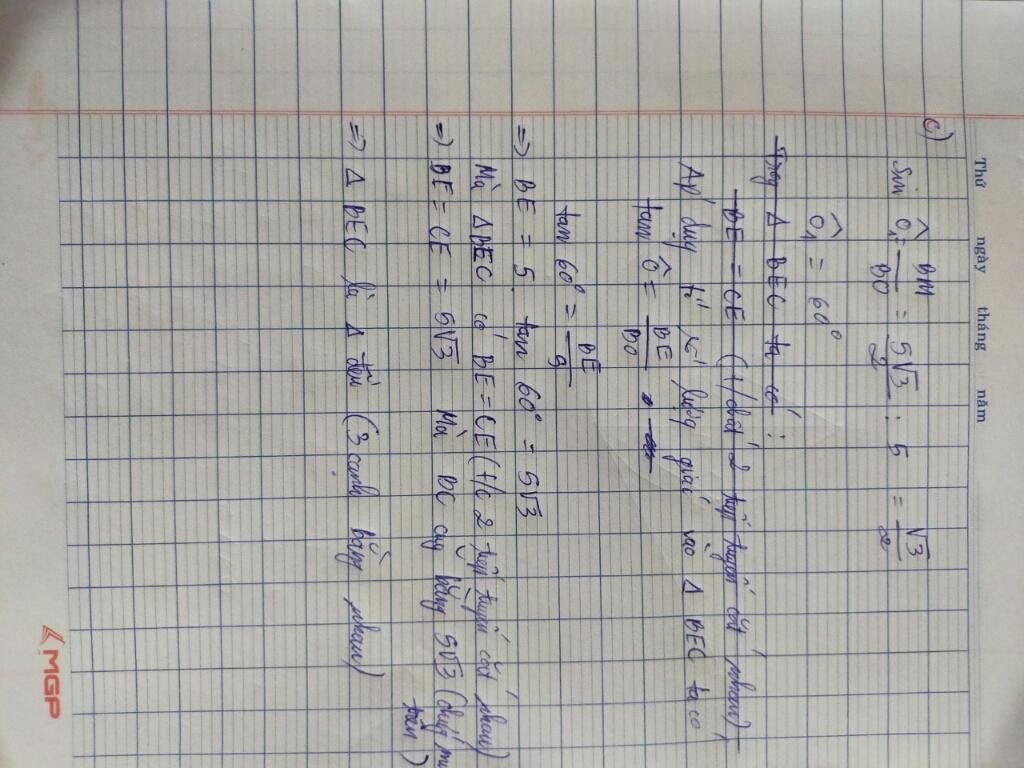 Thứ ngày tháng năm
c)
Sin Ô₁ = BM/BO = 5√3/2 : 5 = √3/2
Ô₁ = 60°
Trong Δ BEC ta có:
BE = CE (t/chất 2 tiếp tuyến cắt nhau)
Áp dụng tỉ số lượng giác vào Δ BEC ta có
tan Ô = BE/BO
tan 60° = BE/5
=> BE = 5. tan 60° = 5√3
Mà ΔBEC có BE = CE (t/c 2 tiếp tuyến cắt nhau)
=> BE = CE = 5√3 Mà BC cũng bằng 5√3 (chứng m
trên)
=> Δ BEC là Δ đều (3 cạnh bằng nhau)
MGP